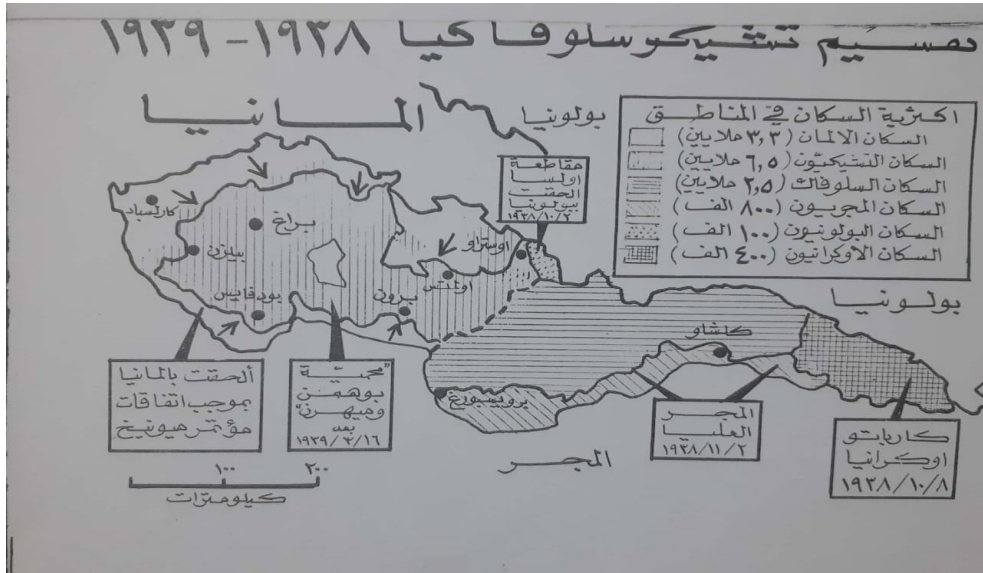 تقسيم تشيكوسلوفاكيا ١٩٣٨-١٩٣٩
المانيا
بولونيا
اكثرية السكان في المناطق
السكان الالمان (٣,٣ ملايين)
السكان التشيكيون (٦,٥ ملايين)
السكان السلوفاك (٢,٥ ملايين)
السكان المجريون (٨٠٠ الف)
السكان البولونيون (١٠٠ الف)
السكان الاوكرانيون (٤٠٠ الف)
مقاطعة
اولسا
الحقت
ببولونيا
١٩٣٨/١٠/٢
كارلسباد
براغ
بيلزن
بودفايس
برون
اولمتس
اوستراو
بولونيا
كاشاو
بريسبورغ
ألحقت بالمانيا
بموجب اتفاقات
مؤتمر ميونيخ
"محمية
بوهمن
وميهرن"
بعد
١٩٣٩/٣/١٦
المجر
العليا
١٩٣٨/١١/٢
كارباتو
اوكرانيا
١٩٣٨/١٠/٨
المجر
١٠٠ ٢٠٠
كيلومترات